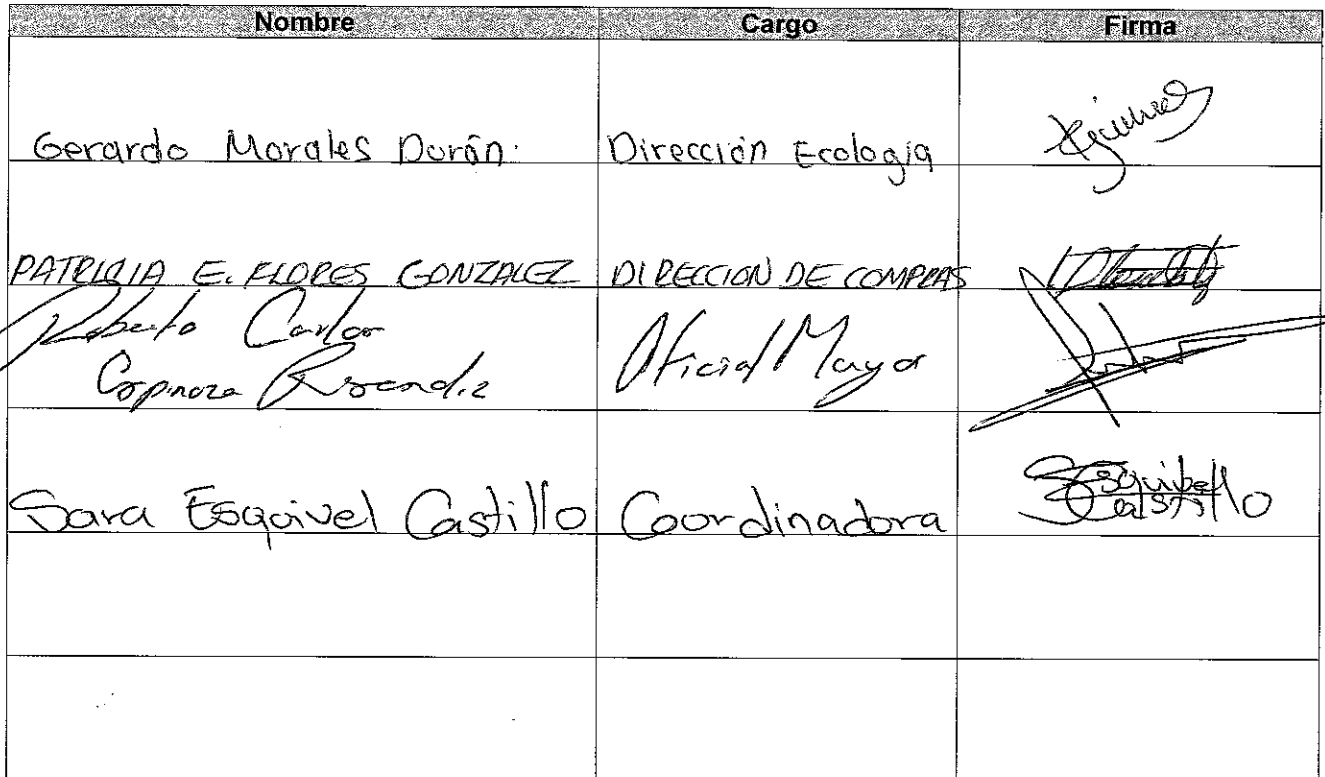 Nombre Cargo Firma
Gerardo Morales Durán. Dirección Ecología
PATRICIA E. FLORES GONZALEZ DIRECCION DE COMPRAS
Roberto Carlos
Espinoza Oficial Mayor
Sara Esquivel Castillo Coordinadora
Esquivel
Castillo